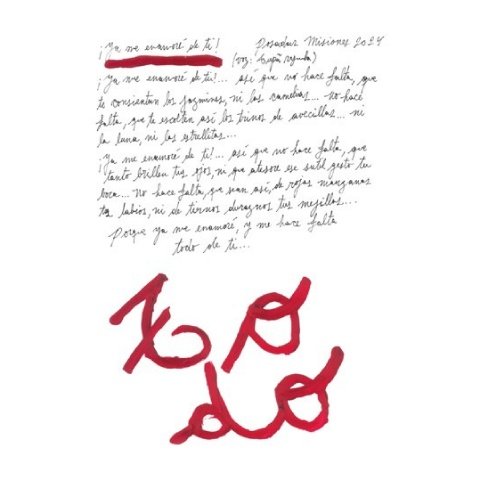 ¡Ya me enamoré de ti! Posadas Misiones 2024
(voz:
¡Ya me enamoré de ti!... así que no hace falta, que
te consientan los jazmines, ni las camelias... no hace
falta, que te escolten así los trinos de avecillas... ni
la luna, ni las estrellitas...
¡Ya me enamoré de ti!... así que no hace falta, que
tanto brillen tus ojos, ni que atesore ese sutil gesto tu
boca... no hace falta, que sean así, de rojas manzanas
tus labios, ni de tiernos duraznos tus mejillas...
Porque ya me enamoré, y me hace falta
todo de ti...
to
do